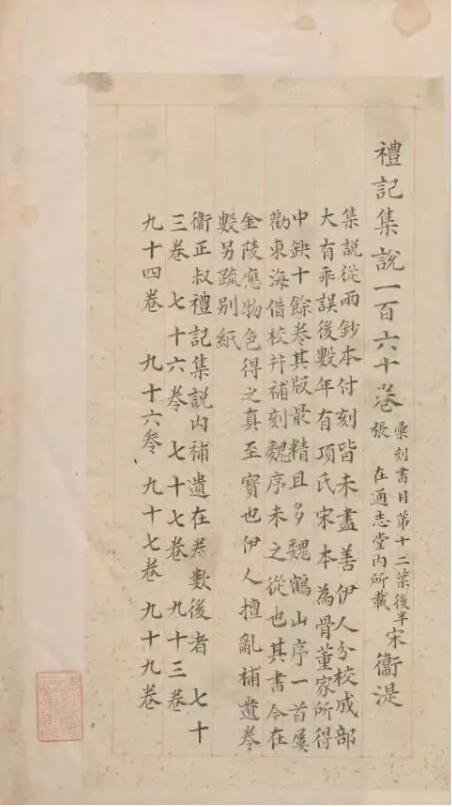 禮記集說一百六十卷 彙刻書目第十二葉後半張 在通志堂內所載 宋衞湜
集說從兩鈔本付刻皆未盡善伊人分校成部
大有乖誤後數年有項氏宋本為骨董家所得
中缺十餘卷其版最精且多魏鶴山序一首屢
勸東海借校并補刻魏序未之從也其書今在
金陵應物色得之真至寶也伊人擅亂補遺卷
數另疏别紙
衞正叔禮記集說內補遺在卷數後者 七十
三卷 七十六卷 七十七卷 九十三卷
九十四卷 九十六卷 九十七卷 九十九卷